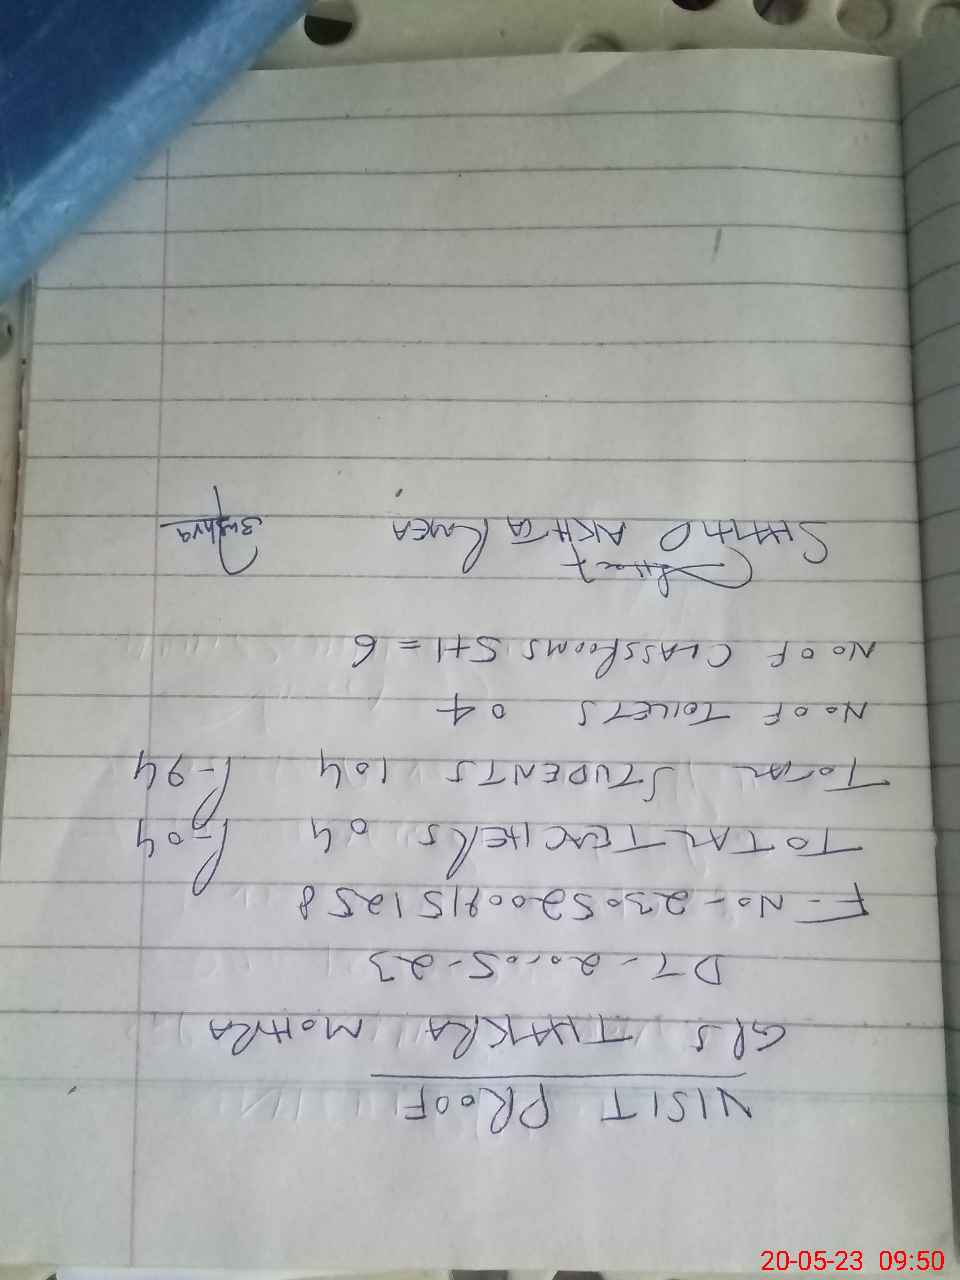 VISIT PROOF
GPS THAKRA MOHRA
DT - 20-05-23
F-No- 23052009151258
TOTAL TEACHERS 04 P-04
TOTAL STUDENTS 104 P-94
No OF TOILETS 04
No OF CLASSROOMS 5+1=6
SHAHID AKHTA
20-05-23 09:50